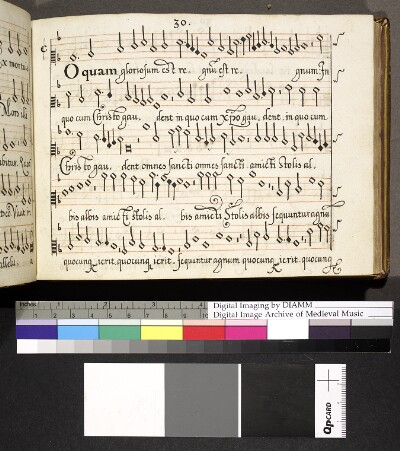 30.
O quam gloriosum est re. gnũ est re. gnum. In
quo cum Christo gau. dent in quo cum Xp̃o gau. dent. in quo cum
Christo gau. dent omnes sancti omnes sancti. amicti stolis al.
bis albis amicti stolis al. bis amicti Stolis albis sequuntur agnũ
quocunq ierit. quocunq ierit. sequuntur agnum quocunq ierit. quocunq
Inches 1 2 3 4
Digital Imaging by DIAMM
Digital Image Archive of Medieval Music
1 2 3 4 5 6 7 8 9 10
QPCARD